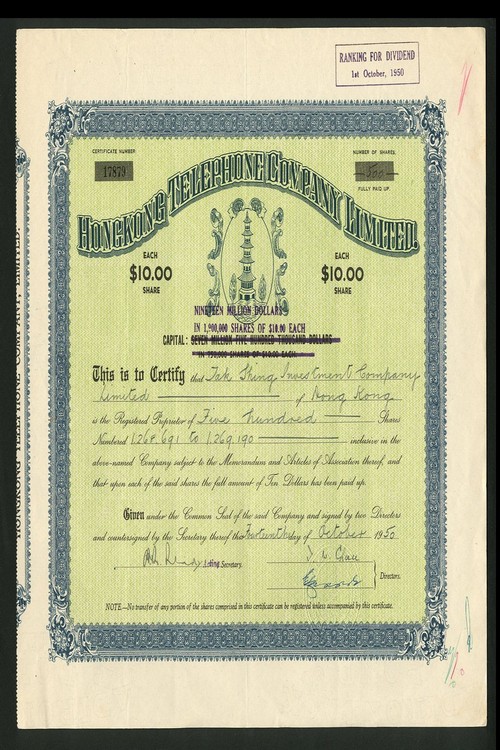 RANKING FOR DIVIDEND
1st October, 1950
CERTIFICATE NUMBER
17879
NUMBER OF SHARES.
500
FULLY PAID UP.
HONGKONG TELEPHONE COMPANY LIMITED.
EACH
$10.00
SHARE
EACH
$10.00
SHARE
NINETEEN MILLION DOLLARS
IN 1,900,000 SHARES OF $10.00 EACH
CAPITAL: SEVEN MILLION FIVE HUNDRED THOUSAND DOLLARS
IN 750,000 SHARES OF $10.00 EACH.
This is to Certify that Tak Shing Investment Company
Limited of Hong Kong
is the Registered Proprietor of Five hundred Shares
Numbered 1,268,691 to 1,269,190 inclusive in the
above-named Company subject to the Memorandum and Articles of Association thereof, and
that upon each of the said shares the full amount of Ten Dollars has been paid up.
Given under the Common Seal of the said Company and signed by two Directors
and countersigned by the Secretary thereof this Fourteenth day of October 1950
Acting Secretary.
Directors.
NOTE.—No transfer of any portion of the shares comprised in this certificate can be registered unless accompanied by this certificate.
HONGKONG TELEPHONE COMPANY, LIMITED.